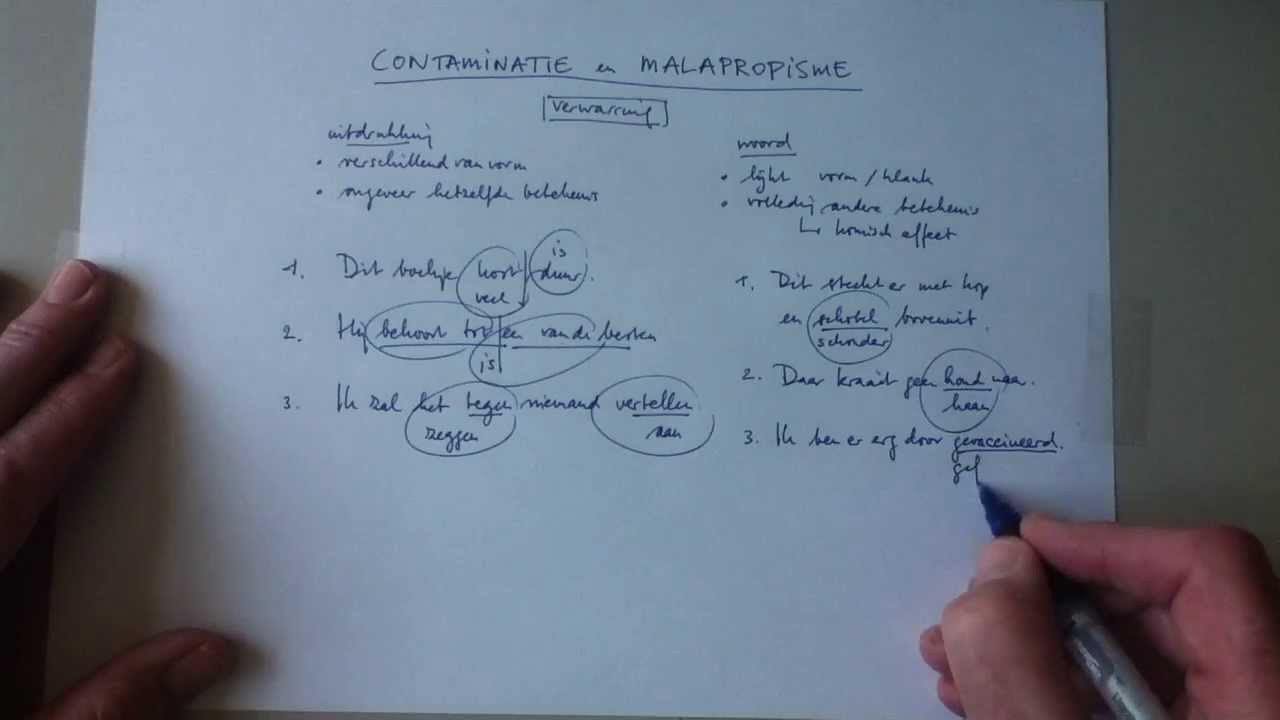 CONTAMINATIE en MALAPROPISME
verwarring
uitdrukking
• verschillend van vorm
• ongeveer hetzelfde betekenis
1. Dit boekje kost is duur.
veel
2. Hij behoort tot een van de besten
is
3. Ik zal het tegen niemand vertellen
zeggen aan
woord
• lijkt vorm / klank
• volledig andere betekenis
↳ komisch effect
1. Dit steekt er met kop
en schotel bovenuit.
schouder
2. Daar kraait geen hond naar.
haan
3. Ik ben er erg door gevaccineerd.
gef